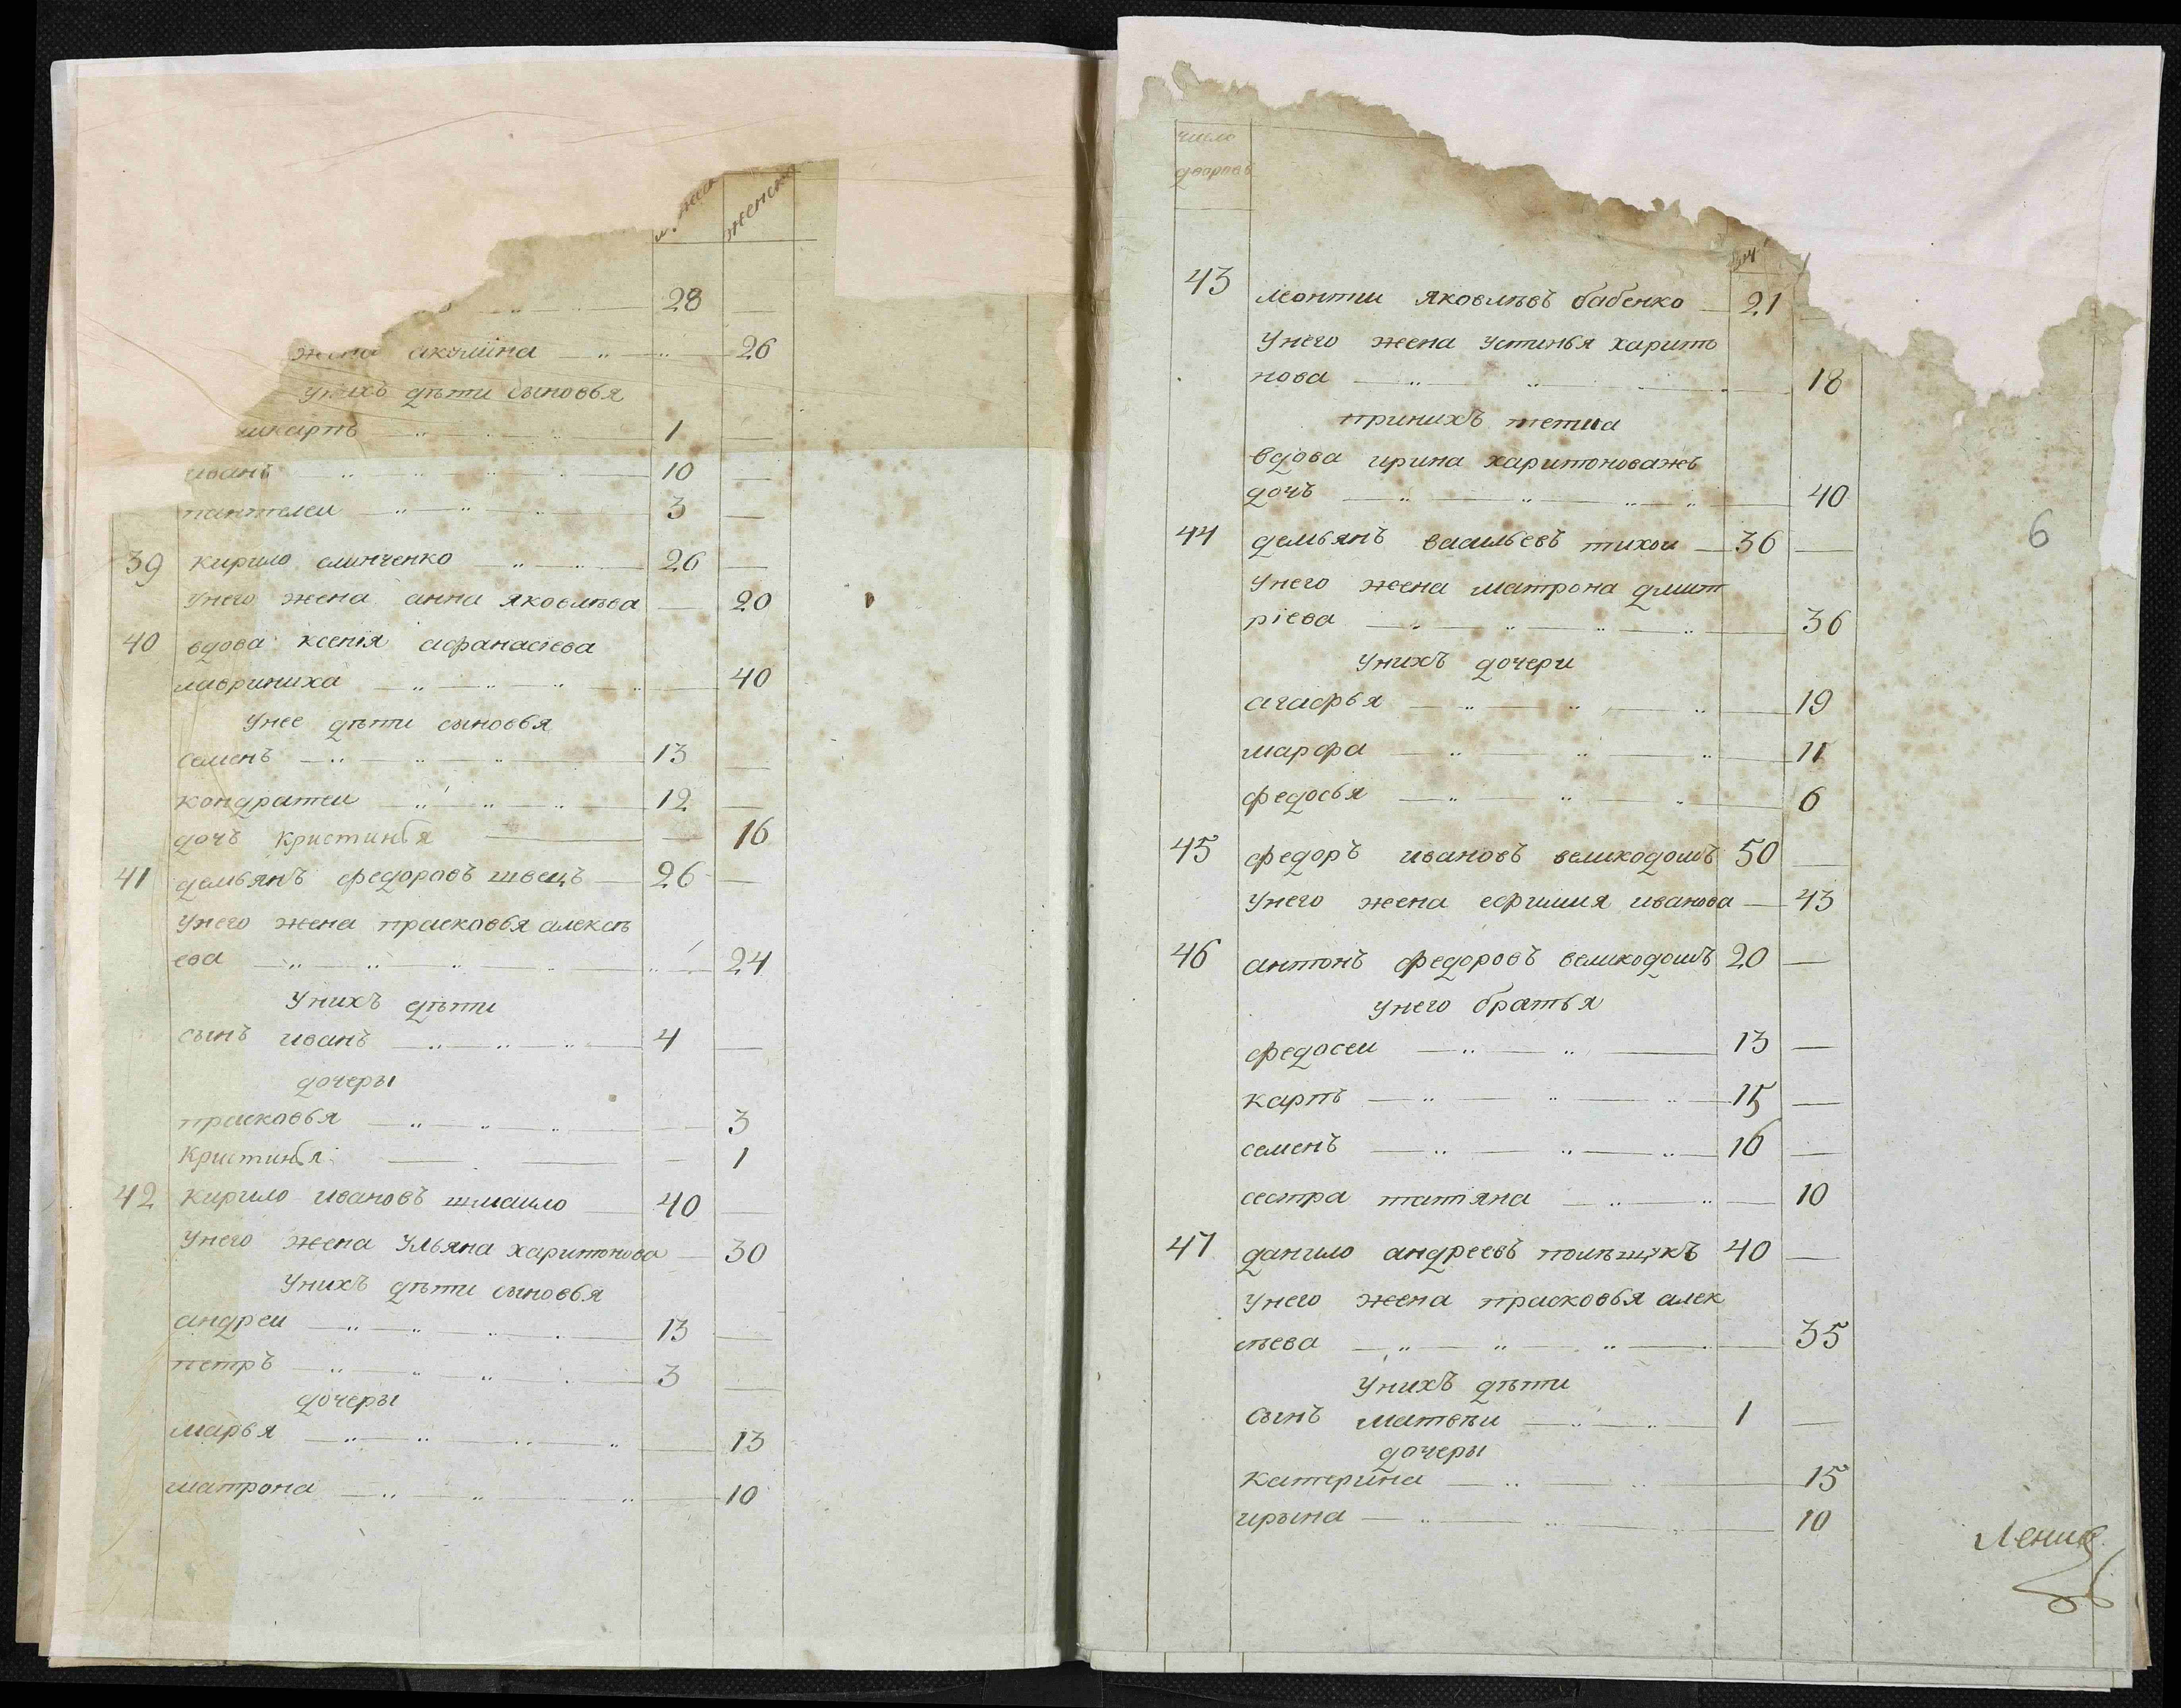 женск
28
жена акилина 26
унихъ дѣти сыновья
1
иванъ 10
пантелеи 3
39 кирило слинченко 26
Унего жена анна яковлѣва 20
40 вдова ксенія афанасіева
лавриниха 40
Унее дѣти сыновья
семенъ 13
кондратеи 12
дочъ кристинья 16
41 демьянъ федоровъ швецъ 26
Унего жена прасковья алексѣ
ева 24
Унихъ дѣти
сынъ иванъ 4
дочеры
прасковья 3
Кристинья 1
42 кирило ивановъ шмаило 40
Унего жена Ульяна харитонова 30
Унихъ дѣти сыновья
андреи 13
петръ 3
дочеры
марья 13
матрона 10
число
дворовъ
43 леонти яковлѣвъ бабенко 21
Унего жена устинья харито
нова 18
принихъ тетка
вдова ирина харитоноважъ
дочъ 40
6
44 демьянъ васильевъ тихои 36
Унего жена матрона дмит
ріева 36
Унихъ дочери
агафья 19
марфа 11
федосья 6
45 федоръ ивановъ великодошъ 50
Унего жена ефимия иванова 43
46 антонъ федоровъ великодошъ 20
Унего братья
федосеи 13
карпъ 15
семенъ 16
сестра татяна 10
47 данило андреевъ 40
Унего жена прасковья алек
сѣева 35
Унихъ дѣти
сынъ матвѣи 1
дочеры
катерина 15
ирына 10